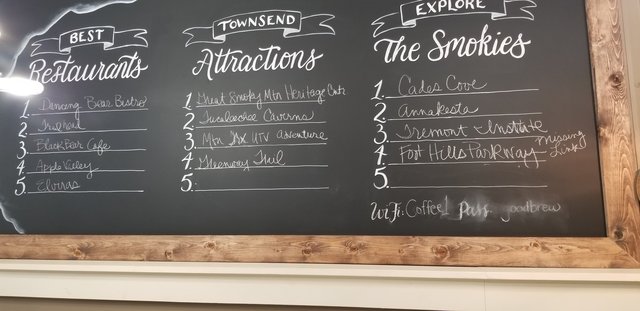 BEST
Restaurants
1. Dancing Bear Bistro
2. Trailhead
3. Black Bear Cafe
4. Apple Valley
5. Elviras
TOWNSEND
Attractions
1. Great Smoky Mtn Heritage Cntr
2. Tucaleechee Caverns
3. Mtn Trx UTV Adventure
4. Greenway Trail
5.
EXPLORE
The Smokies
1. Cades Cove
2. Annakesta
3. Tremont Institute
4. Foot Hills Parkway - Missing Link
5.
WiFi: Coffee1 Pass: goodbrew